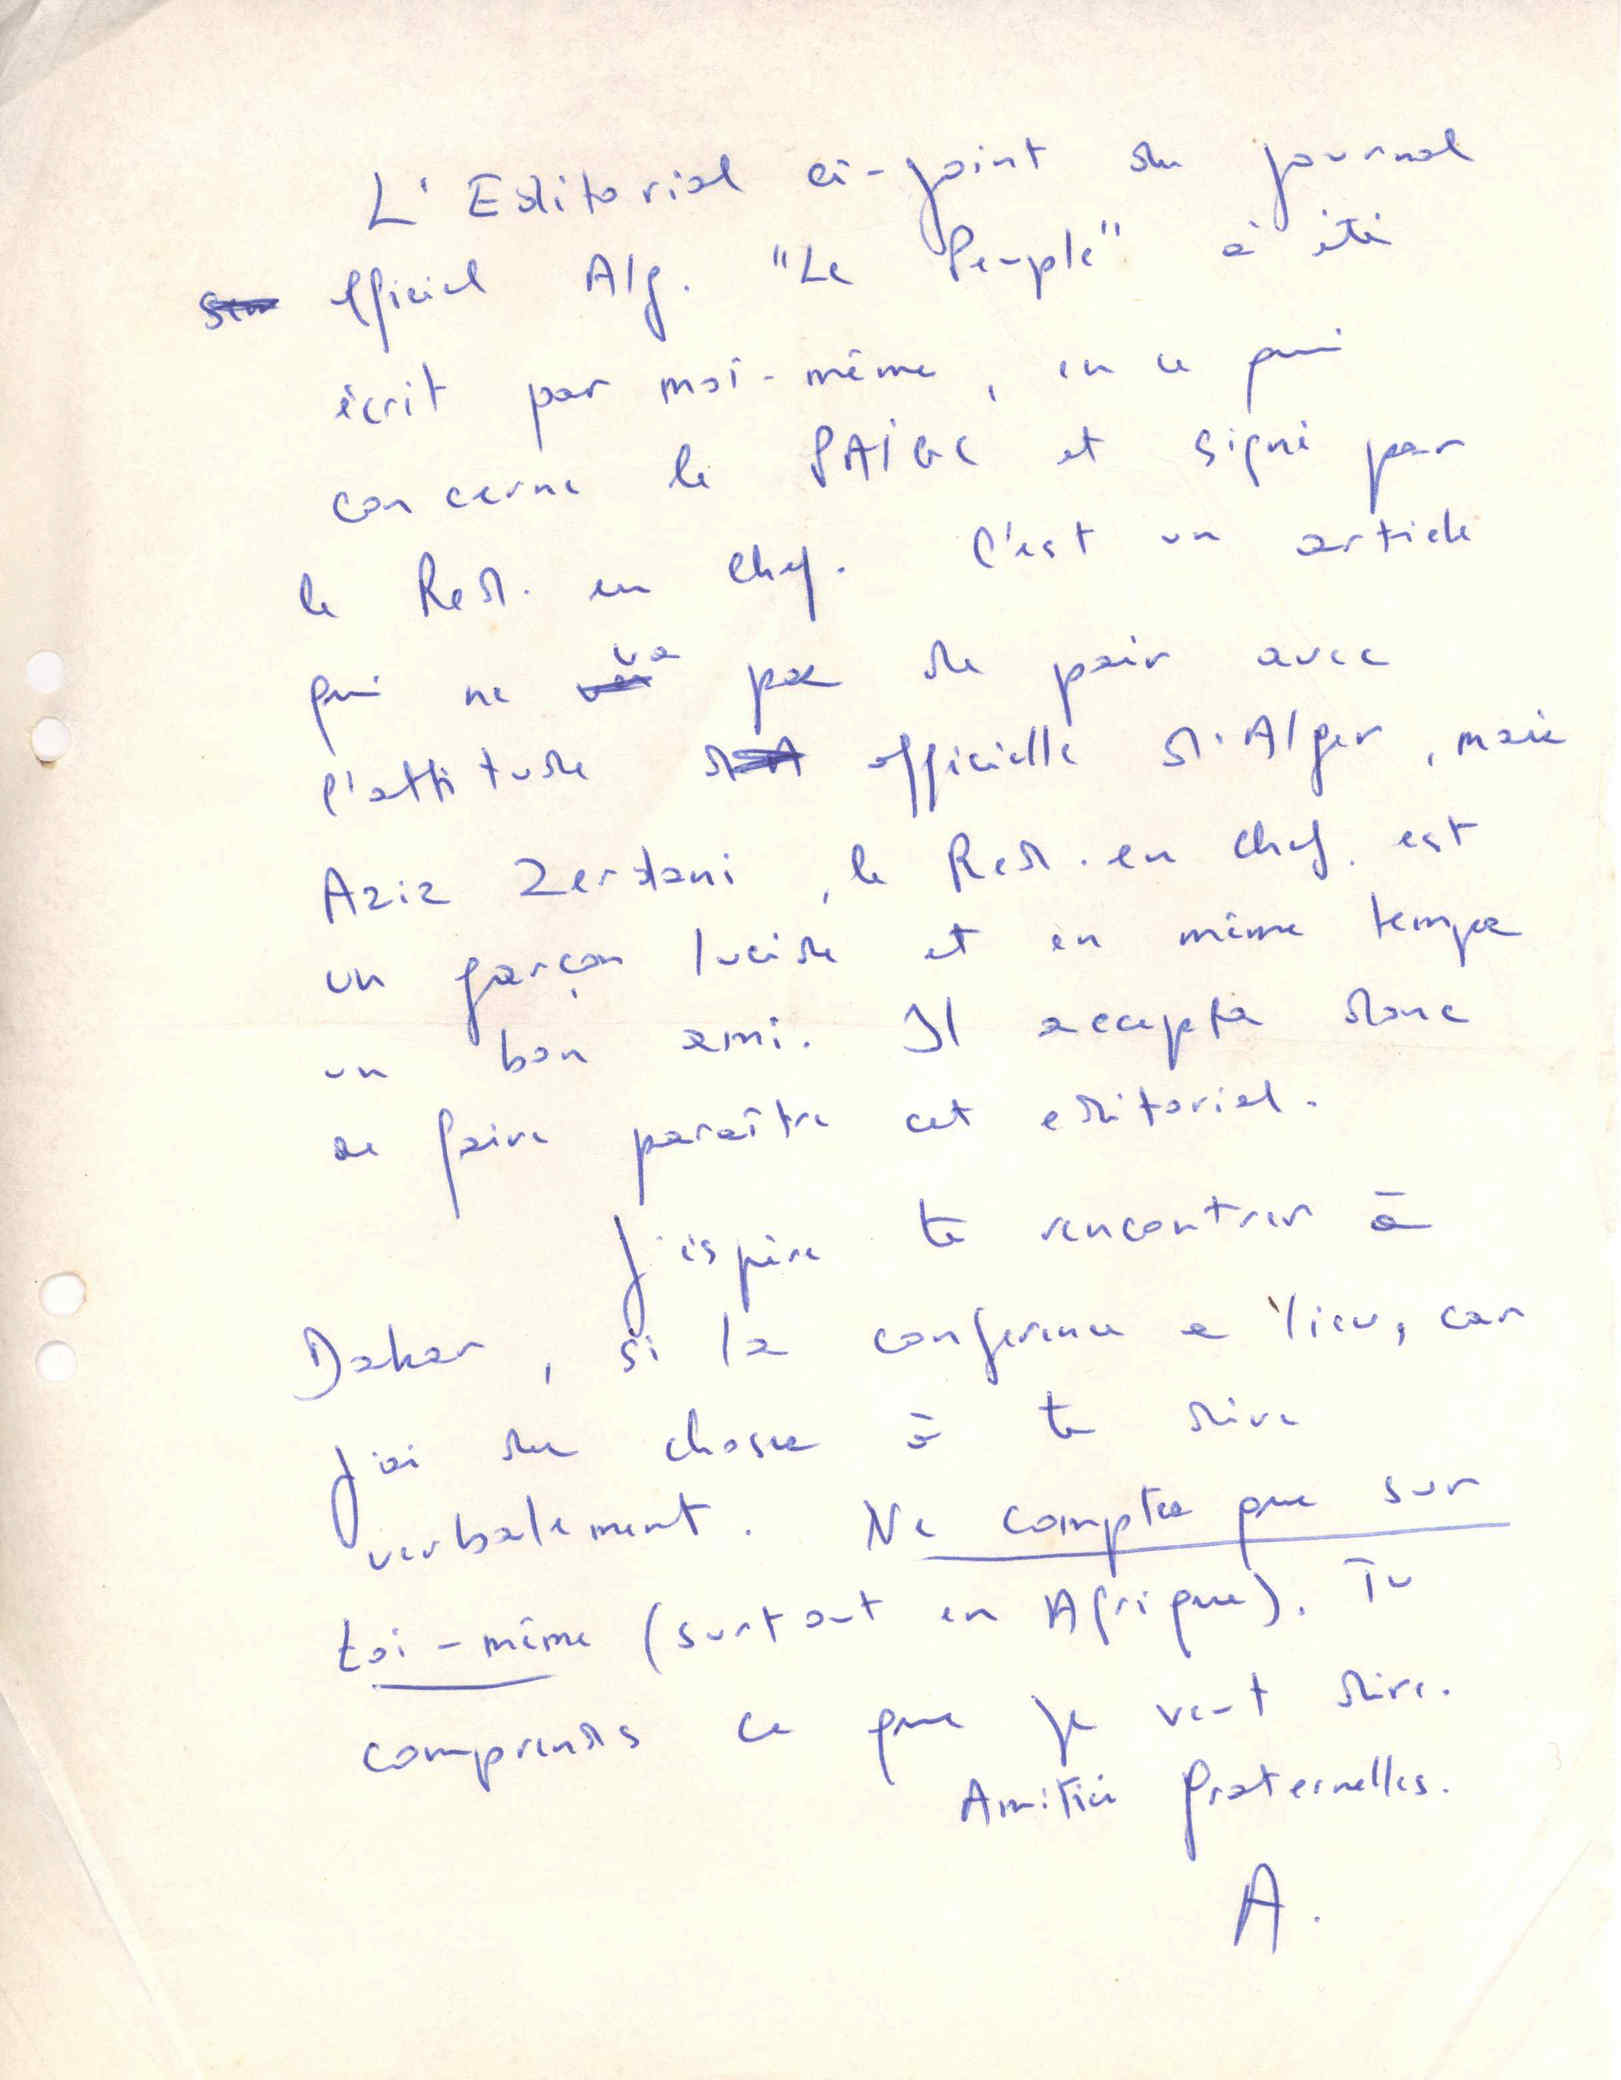 L'Editorial ci-joint du journal
officiel Alg. "Le Peuple" a été
écrit par moi-même, en ce qui
concerne le PAIGC et signé par
le Red. en Chef. C'est un article
qui ne va pas de pair avec
l'attitude officielle d'Alger, mais
Aziz Zerdani, le Red. en Chef. est
un garçon lucide et en même temps
un bon ami. Il accepta donc
de faire paraître cet editorial.
J'espère te rencontrer à
Dakar, si la conference a lieu, car
j'ai des choses à te dire
verbalement. Ne comptes que sur
toi-même (surtout en Afrique). Tu
comprends ce que je veut dire.
Amitiés fraternelles.
A.